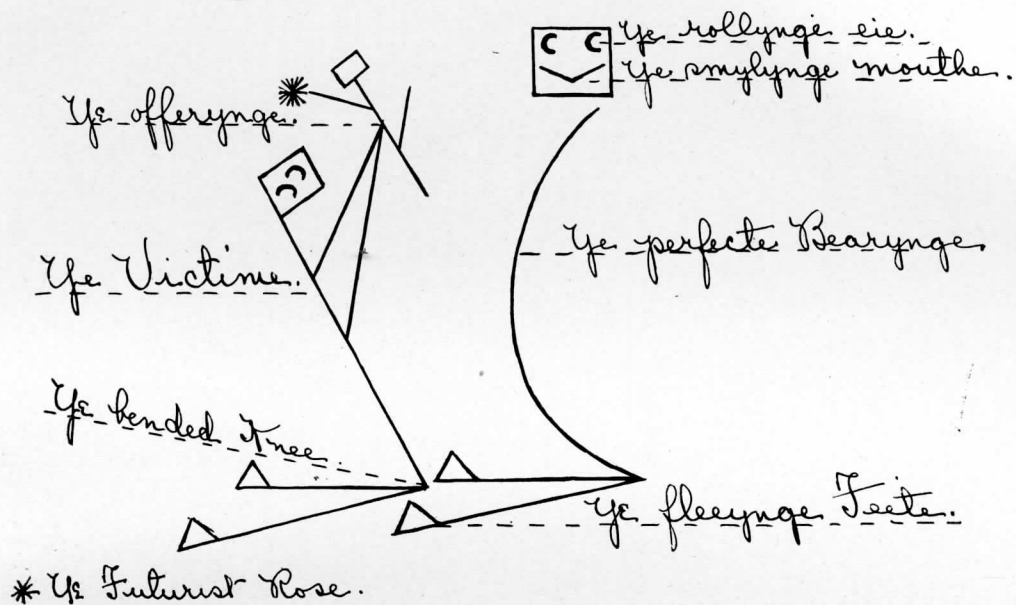 Ye rollynge eie.
Ye smylynge mouthe.
Ye offerynge.
Ye perfecte Bearynge.
Ye Victime.
Ye bended Knee
Ye fleeynge Feete.
* Ye Futurist Rose.